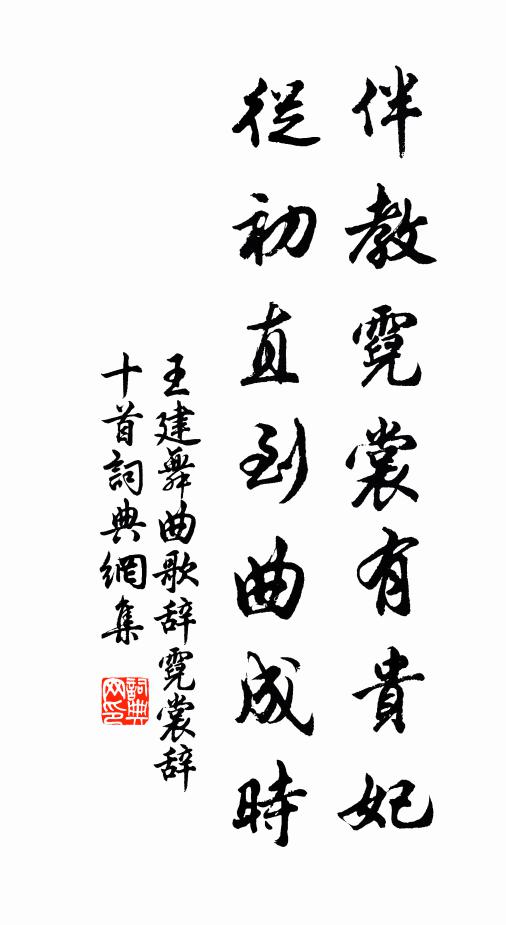 伴教霓裳有貴妃
從初直到曲成時
王建舞曲歌辞霓裳辞
十首詞典網集
詞典
网印